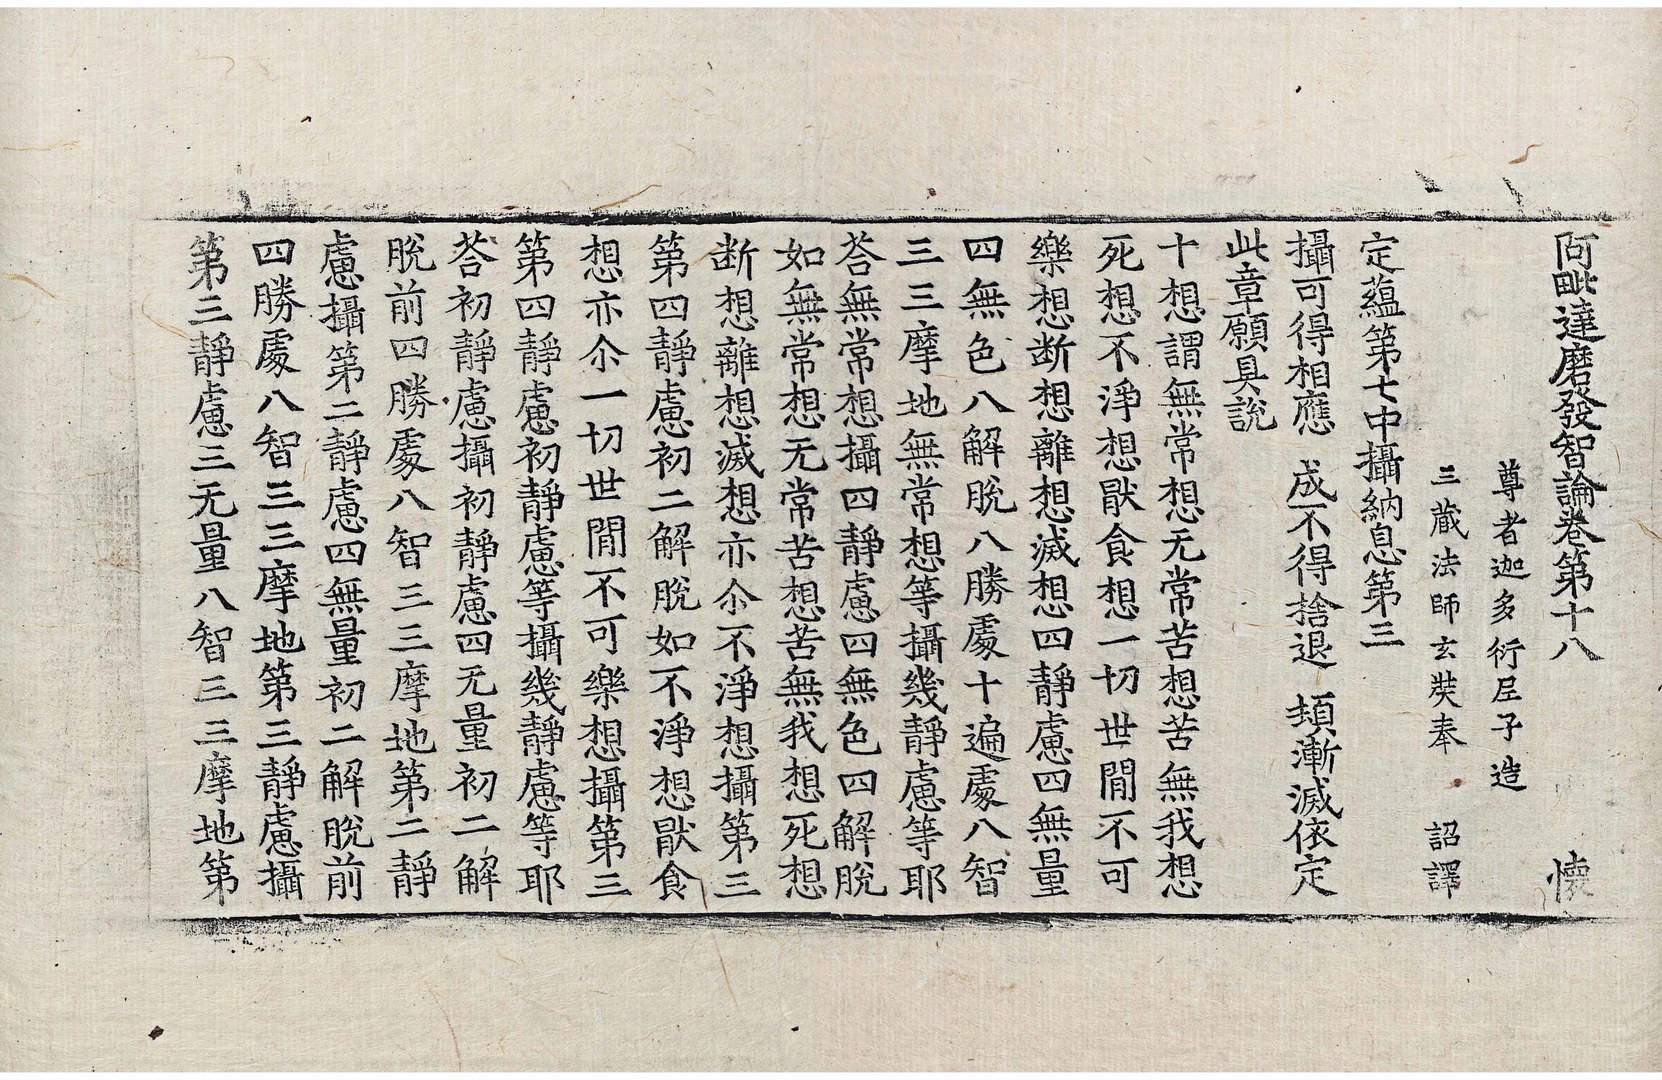 阿毗達磨發智論卷第十八　懐
尊者迦多衍尼子造
三藏法師玄奘奉　詔譯
定蘊第七中攝納息第三
攝可得相應　成不得捨退　頍漸滅依定
此章願具說
十想謂無常想无常苦想苦無我想
死想不淨想猒食想一切世閒不可
樂想断想離想滅想四靜慮四無量
四無色八解脫八勝處十遍處八智
三三摩地無常想等攝幾靜慮等耶
荅無常想攝四靜慮四無色四解脫
如無常想无常苦想苦無我想死想
断想離想滅想亦尒不淨想攝第三
第四靜慮初二解脫如不淨想猒食
想亦尒一切世閒不可樂想攝第三
第四靜慮初靜慮等攝幾靜慮等耶
荅初靜慮攝初靜慮四无量初二解
脫前四勝處八智三三摩地第二靜
慮攝第二靜慮四無量初二解脫前
四勝處八智三三摩地第三靜慮攝
第三靜慮三无量八智三三摩地第